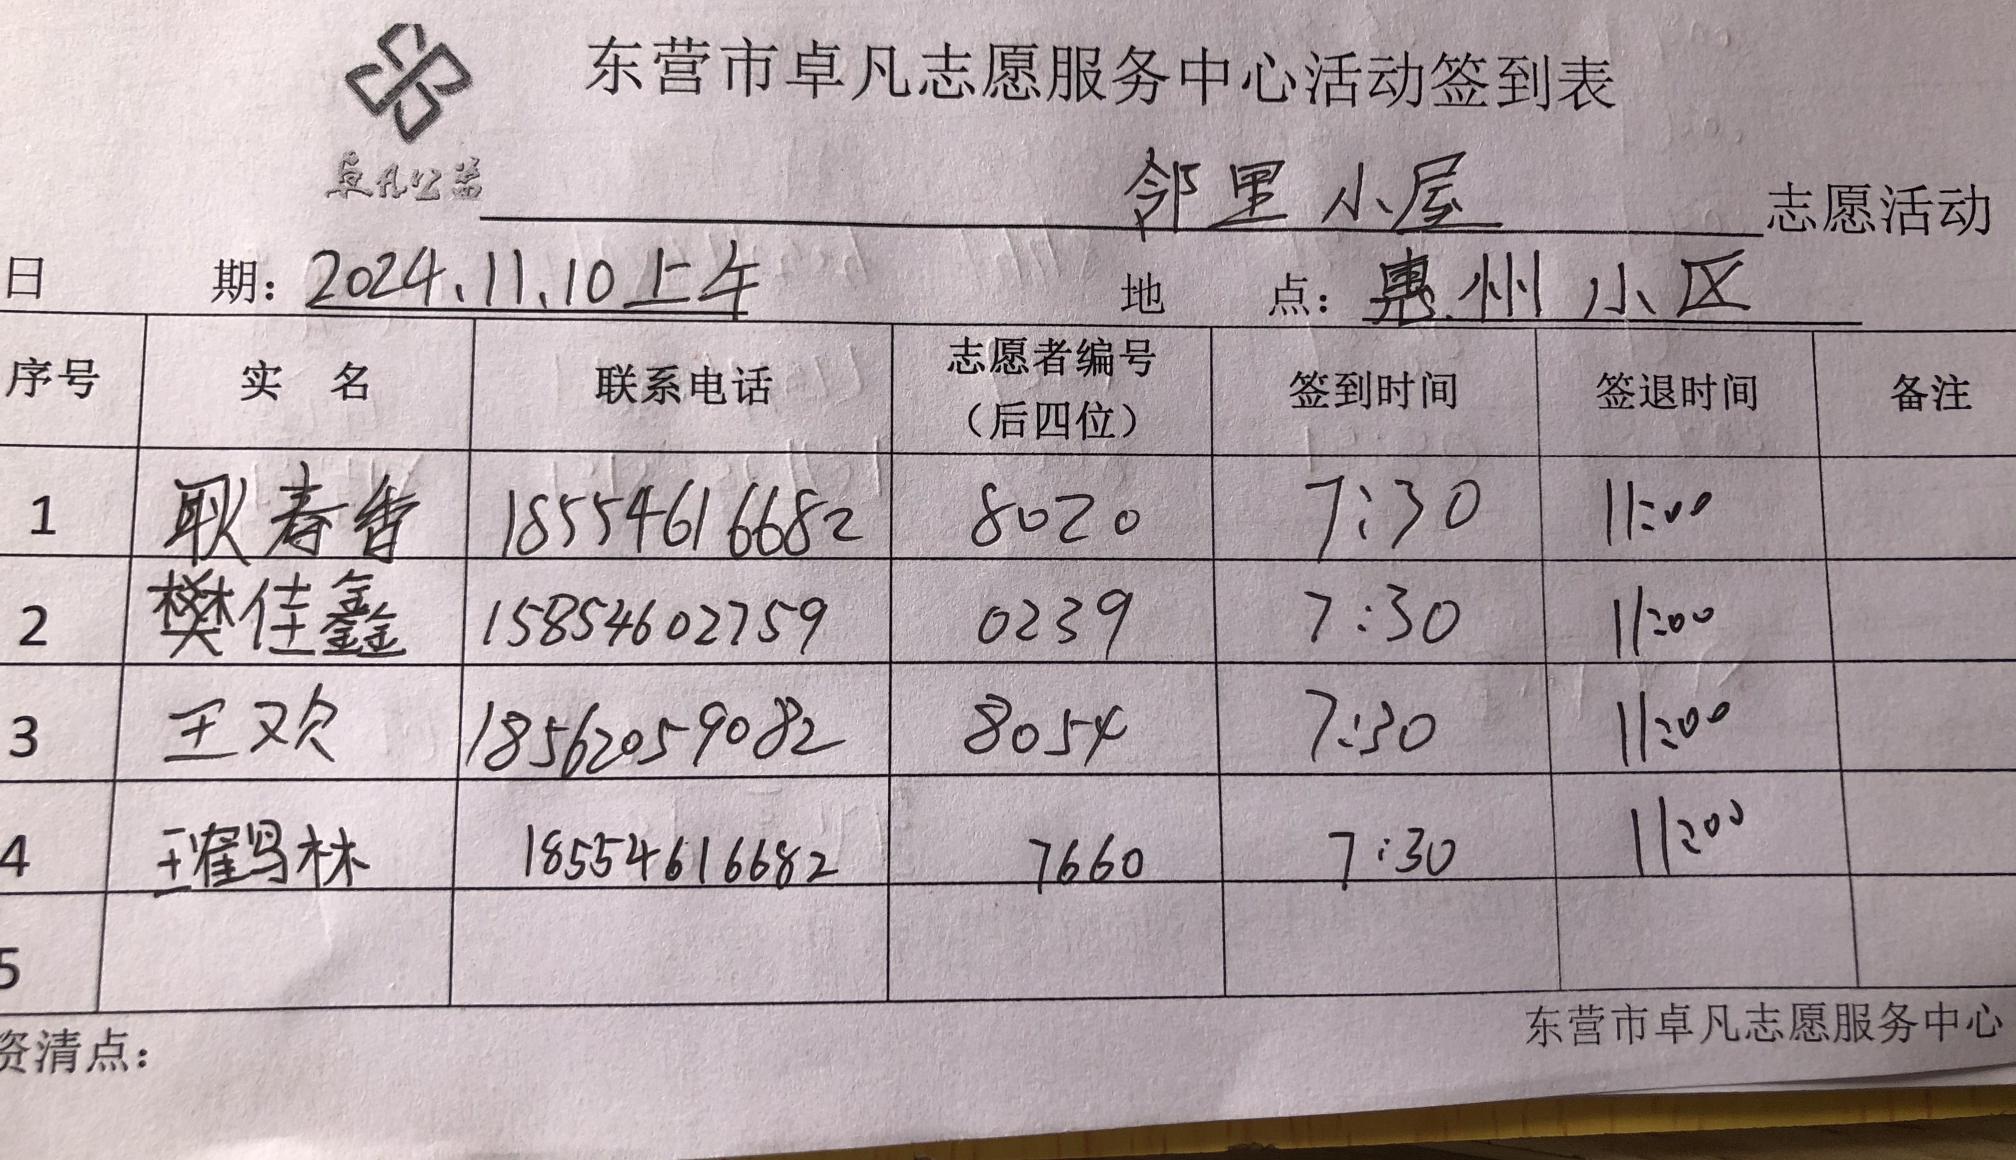 东营市卓凡志愿服务中心活动签到表
卓凡公益
邻里小屋 志愿活动
日 期：2024.11.10上午 地 点：惠州小区
序号 实 名 联系电话 志愿者编号（后四位） 签到时间 签退时间 备注
1 耿春香 18554616682 8020 7:30 11:00
2 樊佳鑫 15854602759 0239 7:30 11:00
3 王欢 18562059082 8054 7:30 11:00
4 王鹤林 18554616682 7660 7:30 11:00
5
资清点：
东营市卓凡志愿服务中心